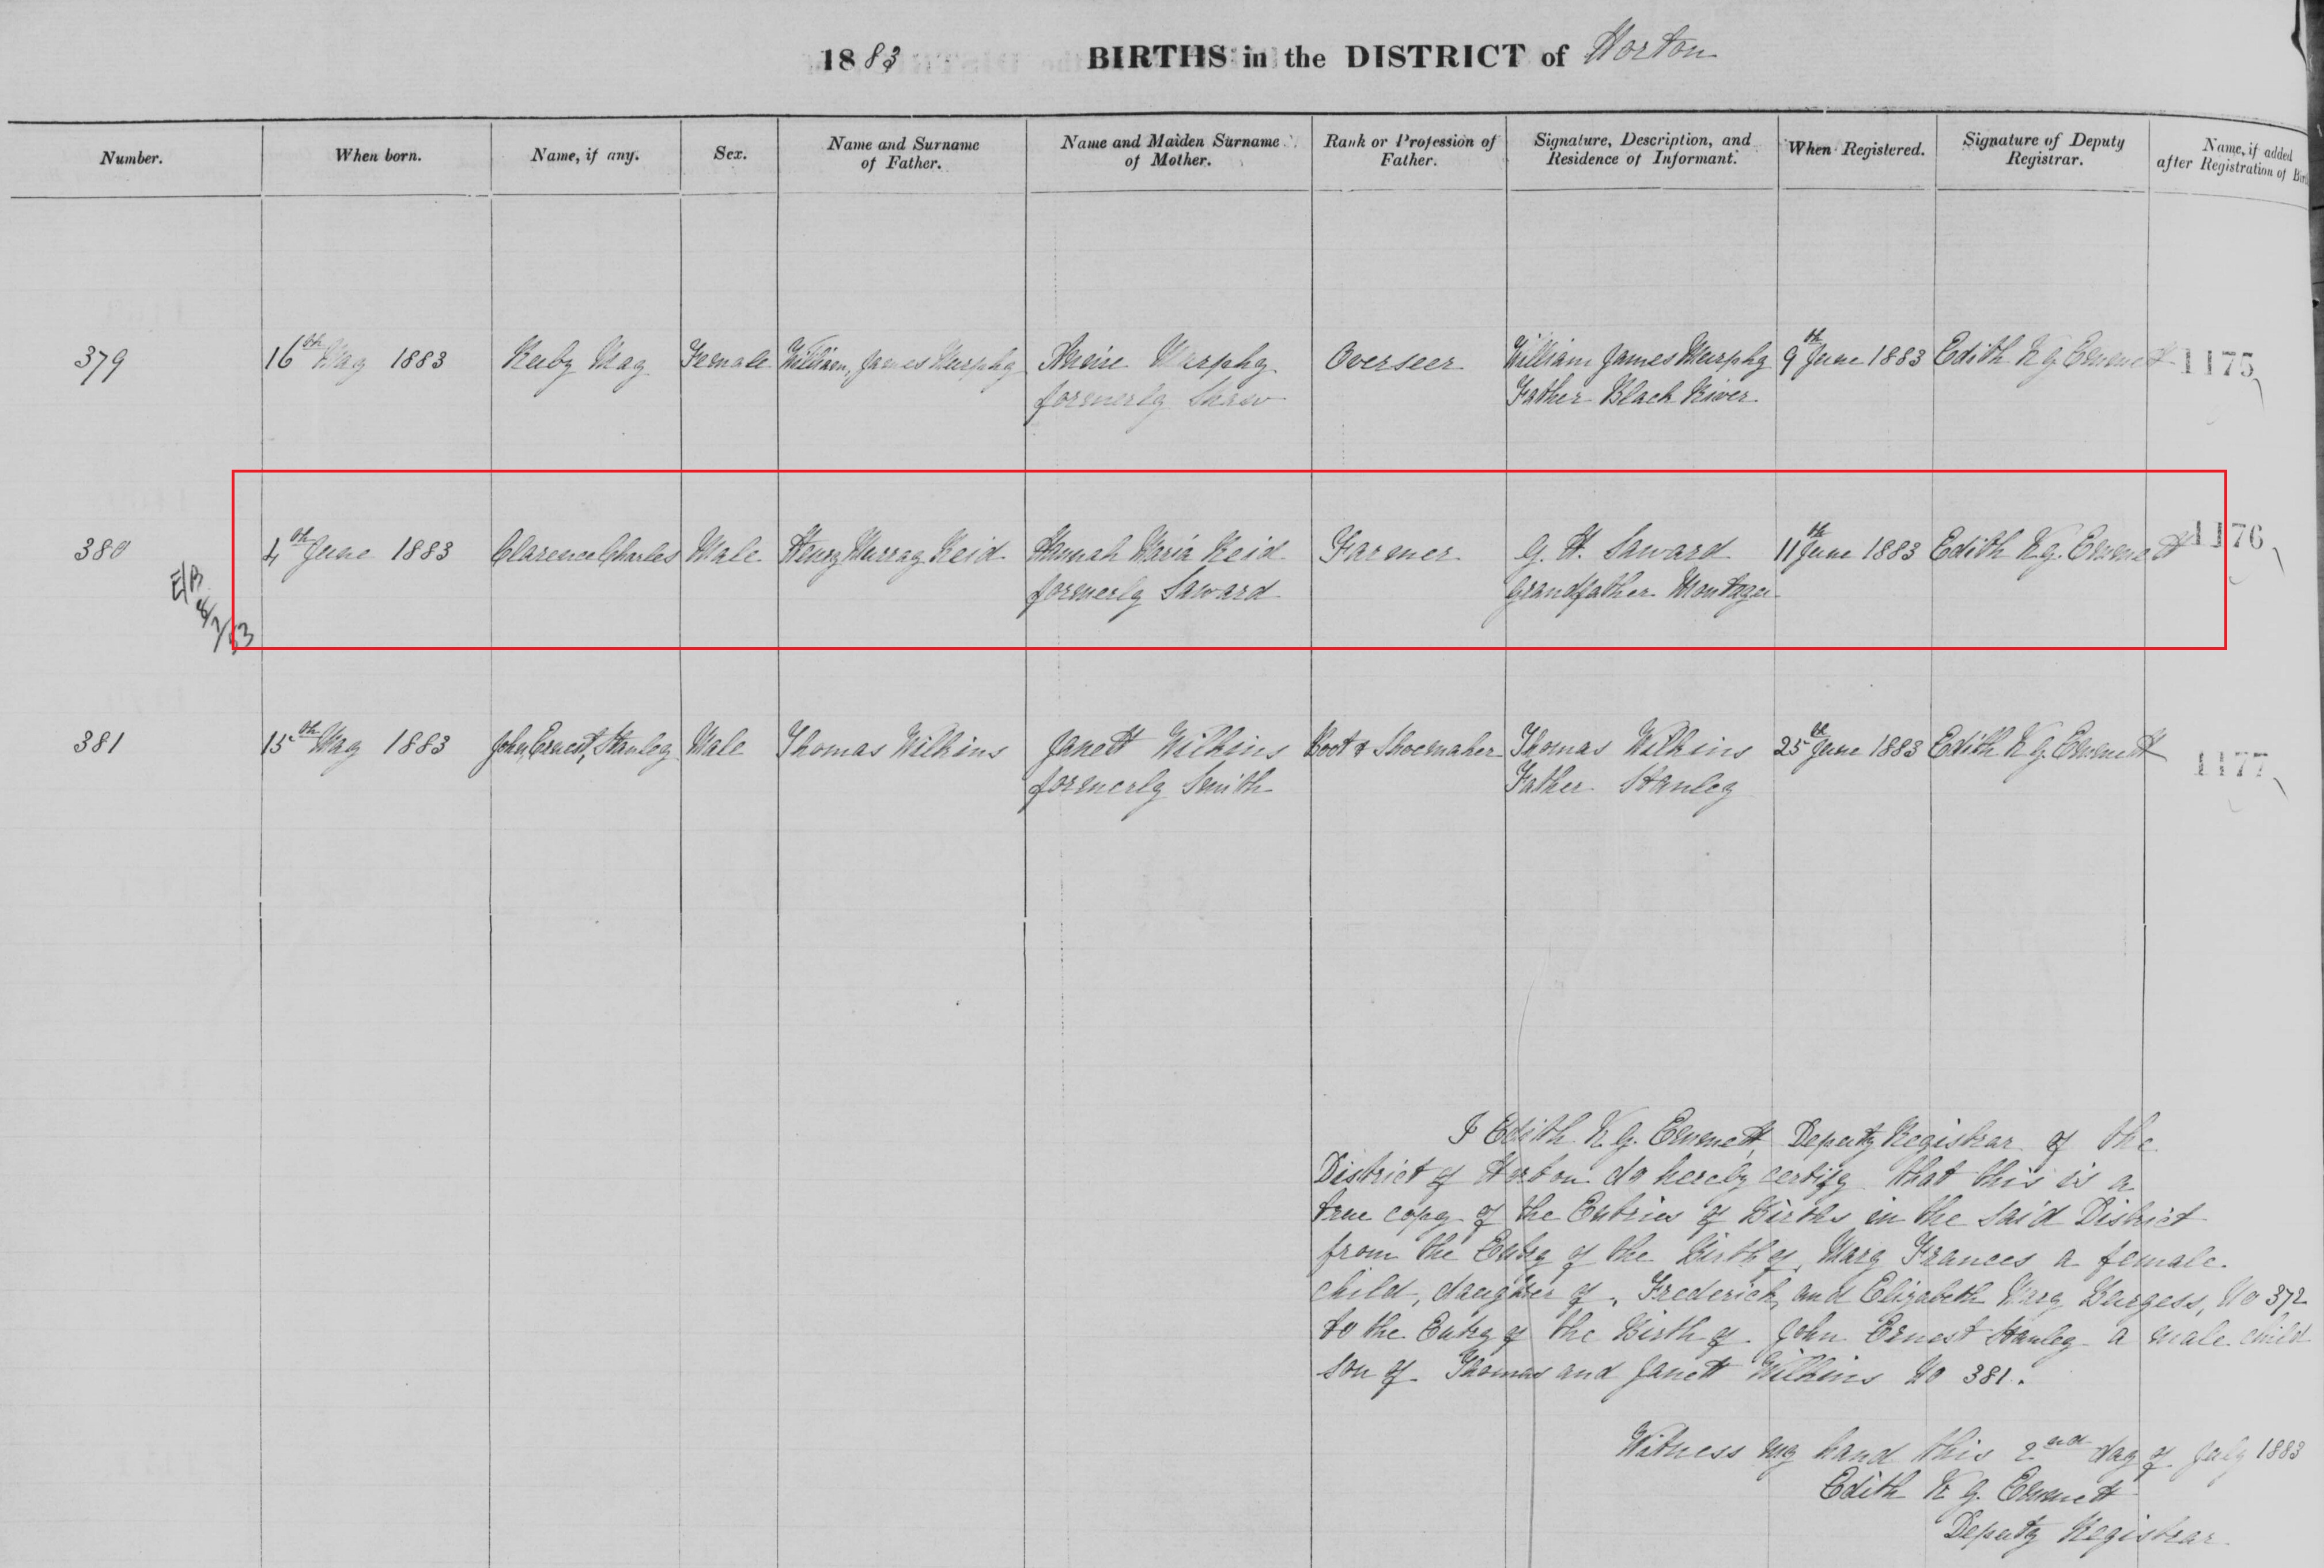 1883 BIRTHS in the DISTRICT of Horton
Number. When born. Name, if any. Sex. Name and Surname of Father. Name and Maiden Surname of Mother. Rank or Profession of Father. Signature, Description, and Residence of Informant. When Registered. Signature of Deputy Registrar. Name, if added after Registration of
379 16th May 1883 Ruby May Female William, James Murphy Annie Murphy Overseer William James Murphy 9th June 1883 Edith K G. Emmett 1175
formerly Shaw Father Black River
380 4th June 1883 Clarence Charles Male Henry Murray Reid Hannah Maria Reid Farmer G. H. Saward 11th June 1883 Edith K G. Emmett 1176
formerly Saward Grandfather Montagu
E/B
8/7/53
381 15th May 1883 John, Ernest, Stanley Male Thomas Wilkins Janett Wilkins Boot & Shoemaker Thomas Wilkins 25th June 1883 Edith K G. Emmett 1177
formerly Smith Father Stanley
I Edith K G. Emmett, Deputy Registrar of the
District of Horton do hereby certify that this is a
true copy of the Entries of Births in the said District
from the Entry of the Birth of, Mary Frances a female
child, daughter of, Frederick and Elizabeth Mary Burgess, No 372
to the Entry of the Birth of John Ernest Stanley a male child
son of Thomas and Janett Wilkins No 381.
Witness my hand this 2nd day of July 1883
Edith K G. Emmett
Deputy Registrar